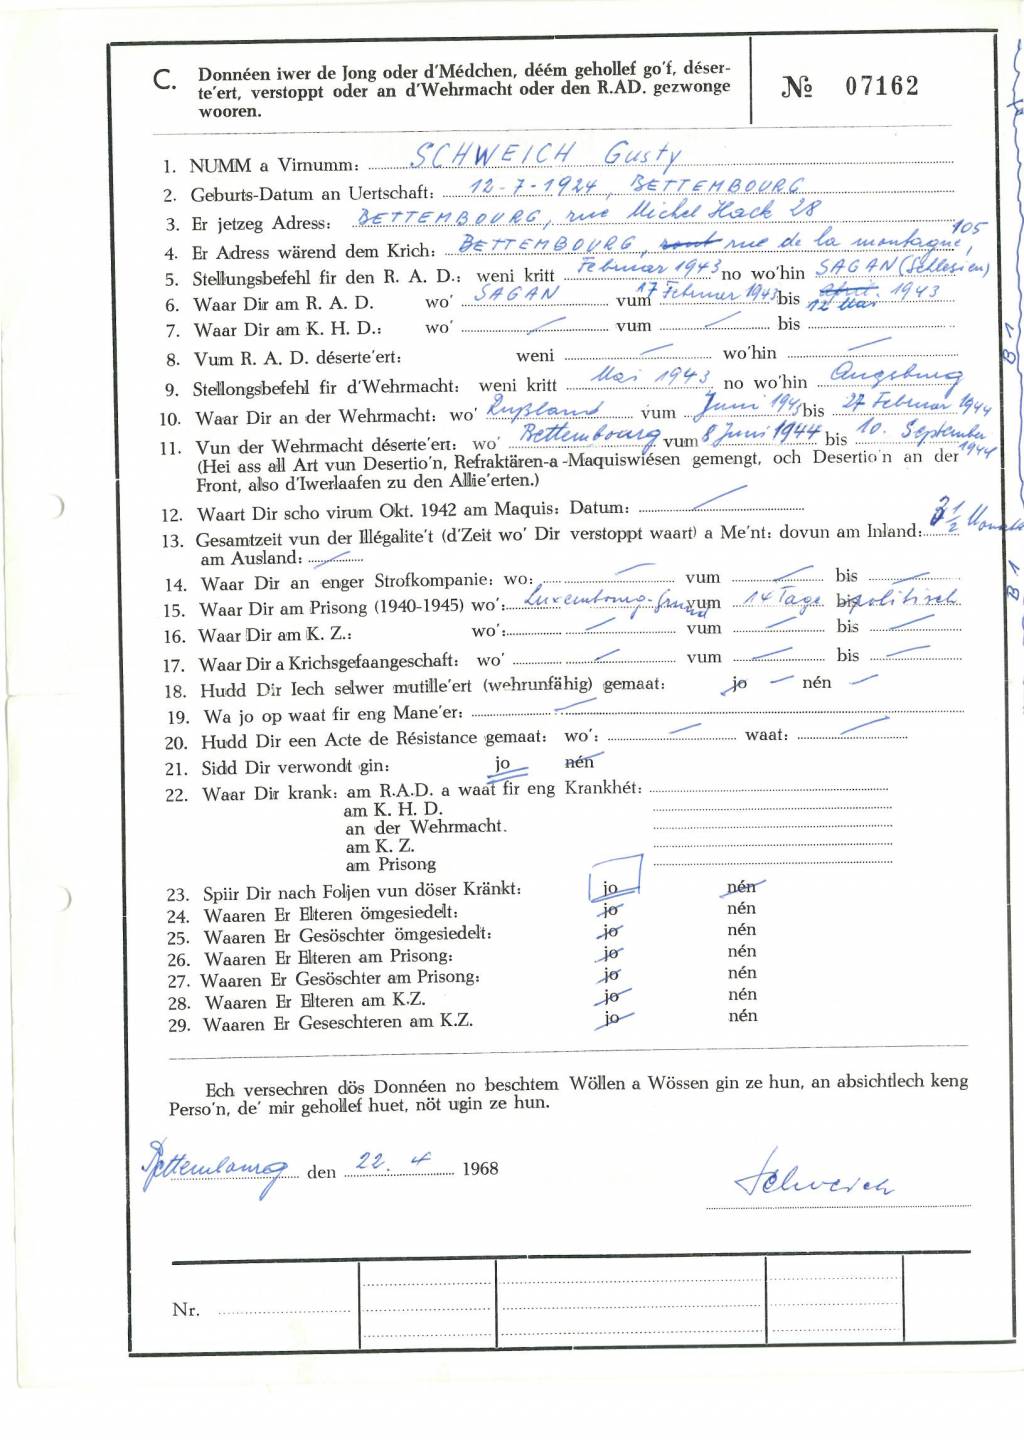 C. Donnéen iwer de Jong oder d'Médchen, déém gehollef go'f, déser-
te'ert, verstoppt oder an d'Wehrmacht oder den R.AD. gezwonge
wooren.
№ 07162
1. NUMM a Virnumm: SCHWEICH Gusty
2. Geburts-Datum an Uertschaft: 12-7-1924, BETTEMBOURG
3. Er jetzeg Adress: BETTEMBOURG, rue Michel Hack 28
4. Er Adress wärend dem Krich: BETTEMBOURG, rue de la montagne, 105
5. Stellungsbefehl fir den R. A. D.: weni kritt Februar 1943 no wo'hin SAGAN (Schlesien)
6. Waar Dir am R. A. D. wo' SAGAN vum 17 Februar 1943 bis April 12 Mai 1943
7. Waar Dir am K. H. D.: wo' — vum — bis
8. Vum R. A. D. déserte'ert: weni — wo'hin —
9. Stellongsbefehl fir d'Wehrmacht: weni kritt Mai 1943 no wo'hin Augsburg
10. Waar Dir an der Wehrmacht: wo' Rußland vum Juni 1943 bis 27 Februar 1944
11. Vun der Wehrmacht déserte'ert: wo' Bettembourg vum 8 Juni 1944 bis 10. September 1944
(Hei ass all Art vun Desertio'n, Refraktären-a-Maquiswiésen gemengt, och Desertio'n an der
Front, also d'Iwerlaafen zu den Allie'erten.)
12. Waart Dir scho virum Okt. 1942 am Maquis: Datum: —
13. Gesamtzeit vun der Illégalite't (d'Zeit wo' Dir verstoppt waart) a Me'nt: dovun am Inland: 3 1/2 Monate
am Ausland: —
14. Waar Dir an enger Strofkompanie: wo: — vum — bis —
15. Waar Dir am Prisong (1940-1945) wo': Luxembourg-Grund vum 14 Tage bis politisch
16. Waar Dir am K. Z.: wo': — vum — bis —
17. Waar Dir a Krichsgefaangeschaft: wo' — vum — bis —
18. Hudd Dir Iech selwer mutille'ert (wehrunfähig) gemaat: jo — nén —
19. Wa jo op waat fir eng Mane'er: —
20. Hudd Dir een Acte de Résistance gemaat: wo': — waat: —
21. Sidd Dir verwondt gin: jo nén
22. Waar Dir krank: am R.A.D. a waat fir eng Krankhét:
am K. H. D.
an der Wehrmacht.
am K. Z.
am Prisong
23. Spiir Dir nach Foljen vun döser Kränkt: jo nén
24. Waaren Er Elteren ömgesiedelt: jo nén
25. Waaren Er Gesöschter ömgesiedelt: jo nén
26. Waaren Er Elteren am Prisong: jo nén
27. Waaren Er Gesöschter am Prisong: jo nén
28. Waaren Er Elteren am K.Z. jo nén
29. Waaren Er Geseschteren am K.Z. jo nén
Ech versechren dös Donnéen no beschtem Wöllen a Wössen gin ze hun, an absichtlech keng
Perso'n, de' mir gehollef huet, nöt ugin ze hun.
Bettembourg den 22. 4 1968
Schweich
Nr.
B 1
B 1